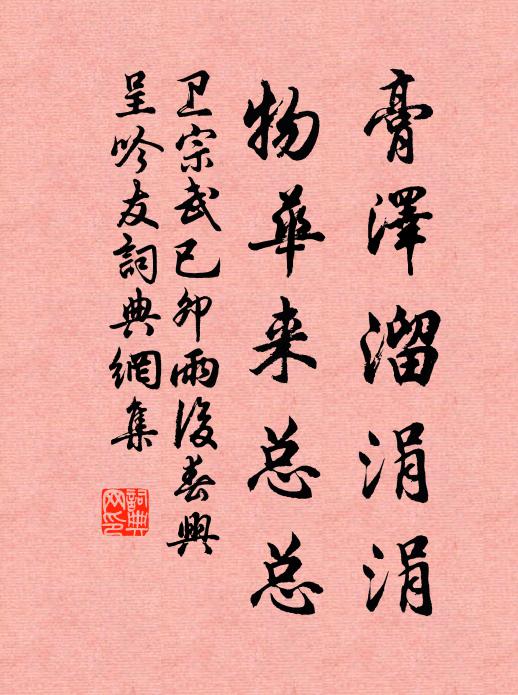 膏澤溜涓涓
物華来总总
卫宗武己卯雨後春興
呈吟友詞典網集
詞典网印